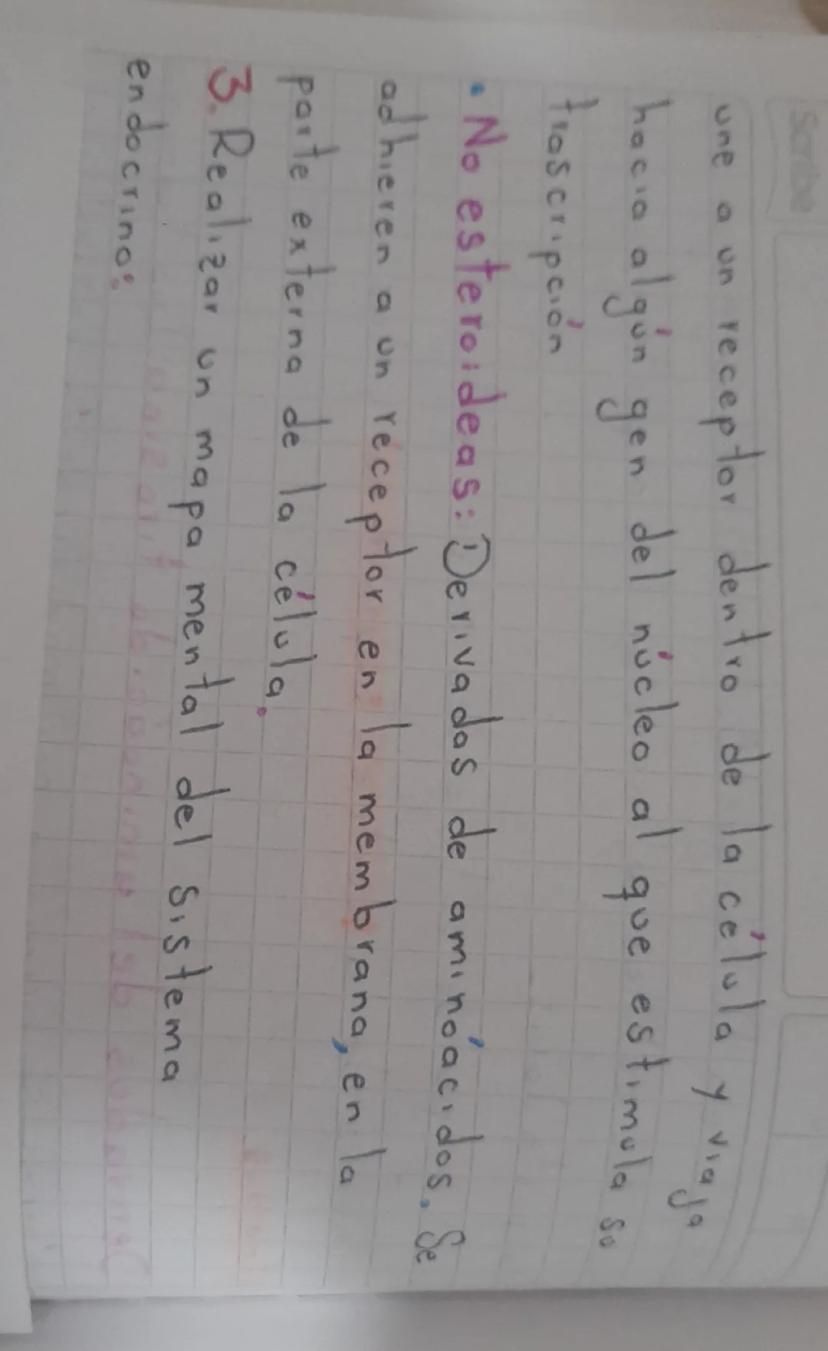 Scribe
une a un receptor dentro de la célula y viaja
hacia algún gen del núcleo al que estimula su
trascripción
• No esteroideas: Derivados de aminoácidos. Se
adhieren a un receptor en la membrana, en la
parte externa de la célula.
3. Realizar un mapa mental del sistema
endocrino: